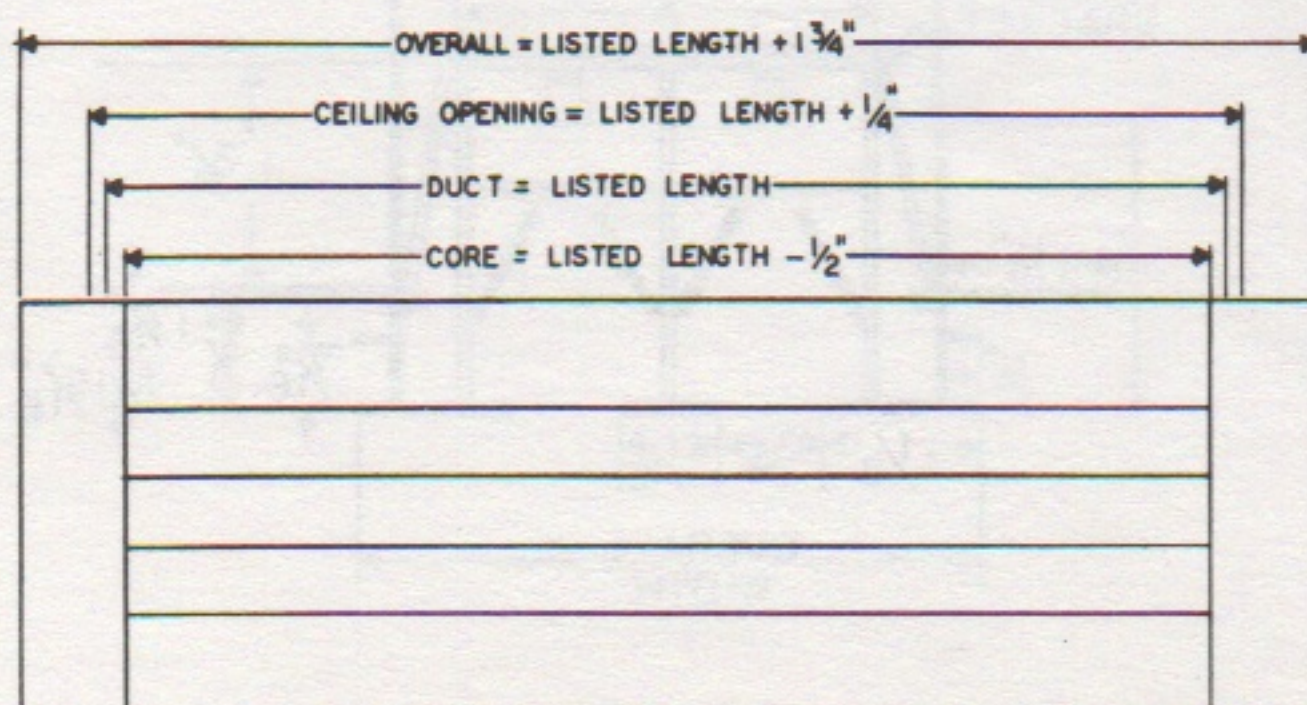 OVERALL = LISTED LENGTH + 1 3/4"
CEILING OPENING = LISTED LENGTH + 1/4"
DUCT = LISTED LENGTH
CORE = LISTED LENGTH - 1/2"